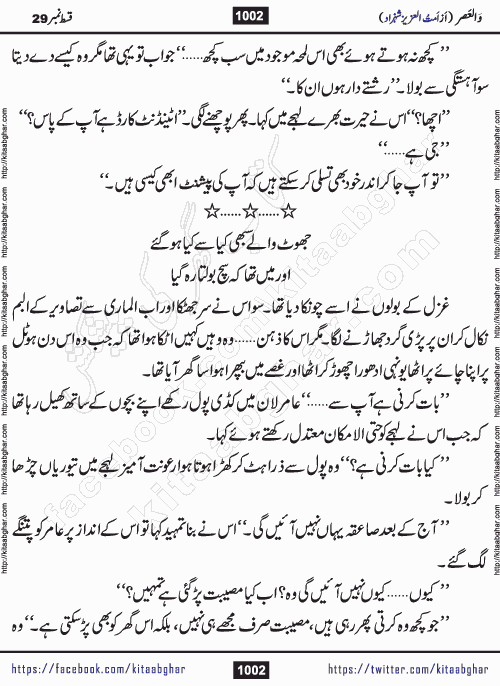 وَالعَصر (اَز اَمتُ العزیز شہزاد)
1002
قسط نمبر 29
’’کچھ نہ ہوتے ہوئے بھی اس لمحہ موجود میں سب کچھ......‘‘ جواب تو یہی تھا مگر وہ کیسے دے دیتا
سو آہستگی سے بولا۔ ’’رشتے دار ہوں ان کا۔‘‘
’’اچھا؟‘‘ اس نے حیرت بھرے لہجے میں کہا۔ پھر پوچھنے لگی۔ ’’اٹینڈنٹ کارڈ ہے آپ کے پاس؟‘‘
’’جی ہے......‘‘
’’تو آپ جا کر اندر خود بھی تسلی کر سکتے ہیں کہ آپ کی پیشنٹ ابھی کیسی ہیں۔‘‘
☆......☆......☆
جھوٹ والے کبھی کیا سے کیا ہو گئے
اور میں تھا کہ سچ بولتا رہ گیا
غزل کے بولوں نے اسے چونکا دیا تھا۔ سو اس نے سر جھٹکا اور اب الماری سے تصاویر کے البم
نکال کر ان پر پڑی گرد جھاڑنے لگا۔ مگر اس کا ذہن...... وہ وہیں کہیں اٹکا ہوا تھا کہ جب وہ اس دن ہوٹل
پر اپنا چائے پراٹھا یونہی ادھورا چھوڑ کر اٹھا اور غصے میں بپھرا ہوا سا گھر آیا تھا۔
’’بات کرنی ہے آپ سے......‘‘ عامر لان میں کڈی پول رکھے اپنے بچوں کے ساتھ کھیل رہا تھا
کہ جب اس نے لہجے کو حتی الامکان معتدل رکھتے ہوئے کہا۔
’’کیا بات کرنی ہے؟‘‘ وہ پول سے ذرا ہٹ کر کھڑا ہوتا ہوا رعونت آمیز لہجے میں تیوریاں چڑھا
کر بولا۔
’’آج کے بعد صاعقہ یہاں نہیں آئیں گی۔‘‘ اس نے بنا تمہید کہا تو اس کے انداز پر عامر کو پتنگے
لگ گئے۔
’’کیوں...... کیوں نہیں آئیں گی وہ؟ اب کیا مصیبت پڑ گئی ہے تمہیں؟‘‘
’’جو کچھ وہ کرتی پھر رہی ہیں، مصیبت صرف مجھے ہی نہیں، بلکہ اس گھر کو بھی پڑ سکتی ہے۔‘‘ وہ
https://facebook.com/kitaabghar
1002
https://twitter.com/kitaabghar
http://kitaabghar.com http://kitaabghar.com http://kitaabghar.com http://kitaabghar.com http://kitaabghar.com http://kitaabghar.com
http://kitaabghar.com http://kitaabghar.com http://kitaabghar.com http://kitaabghar.com http://kitaabghar.com http://kitaabghar.com
kitaabghar.com